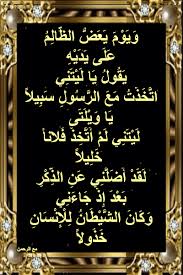 وَيَوْمَ يَعَضُّ الظَّالِمُ
عَلَى يَدَيْهِ
يَقُولُ يَا لَيْتَنِي
اتَّخَذْتُ مَعَ الرَّسُولِ سَبِيلاً
يَا وَيْلَتَى
لَيْتَنِي لَمْ أَتَّخِذْ فُلَاناً
خَلِيلاً
لَقَدْ أَضَلَّنِي عَنِ الذِّكْرِ
بَعْدَ إِذْ جَاءَنِي
وَكَانَ الشَّيْطَانُ لِلْإِنسَانِ
خَذُولاً
مع الرحمن